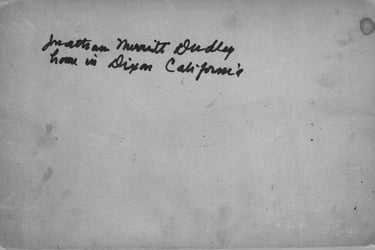 Jonathan Merritt Dudley
home in Dixon California